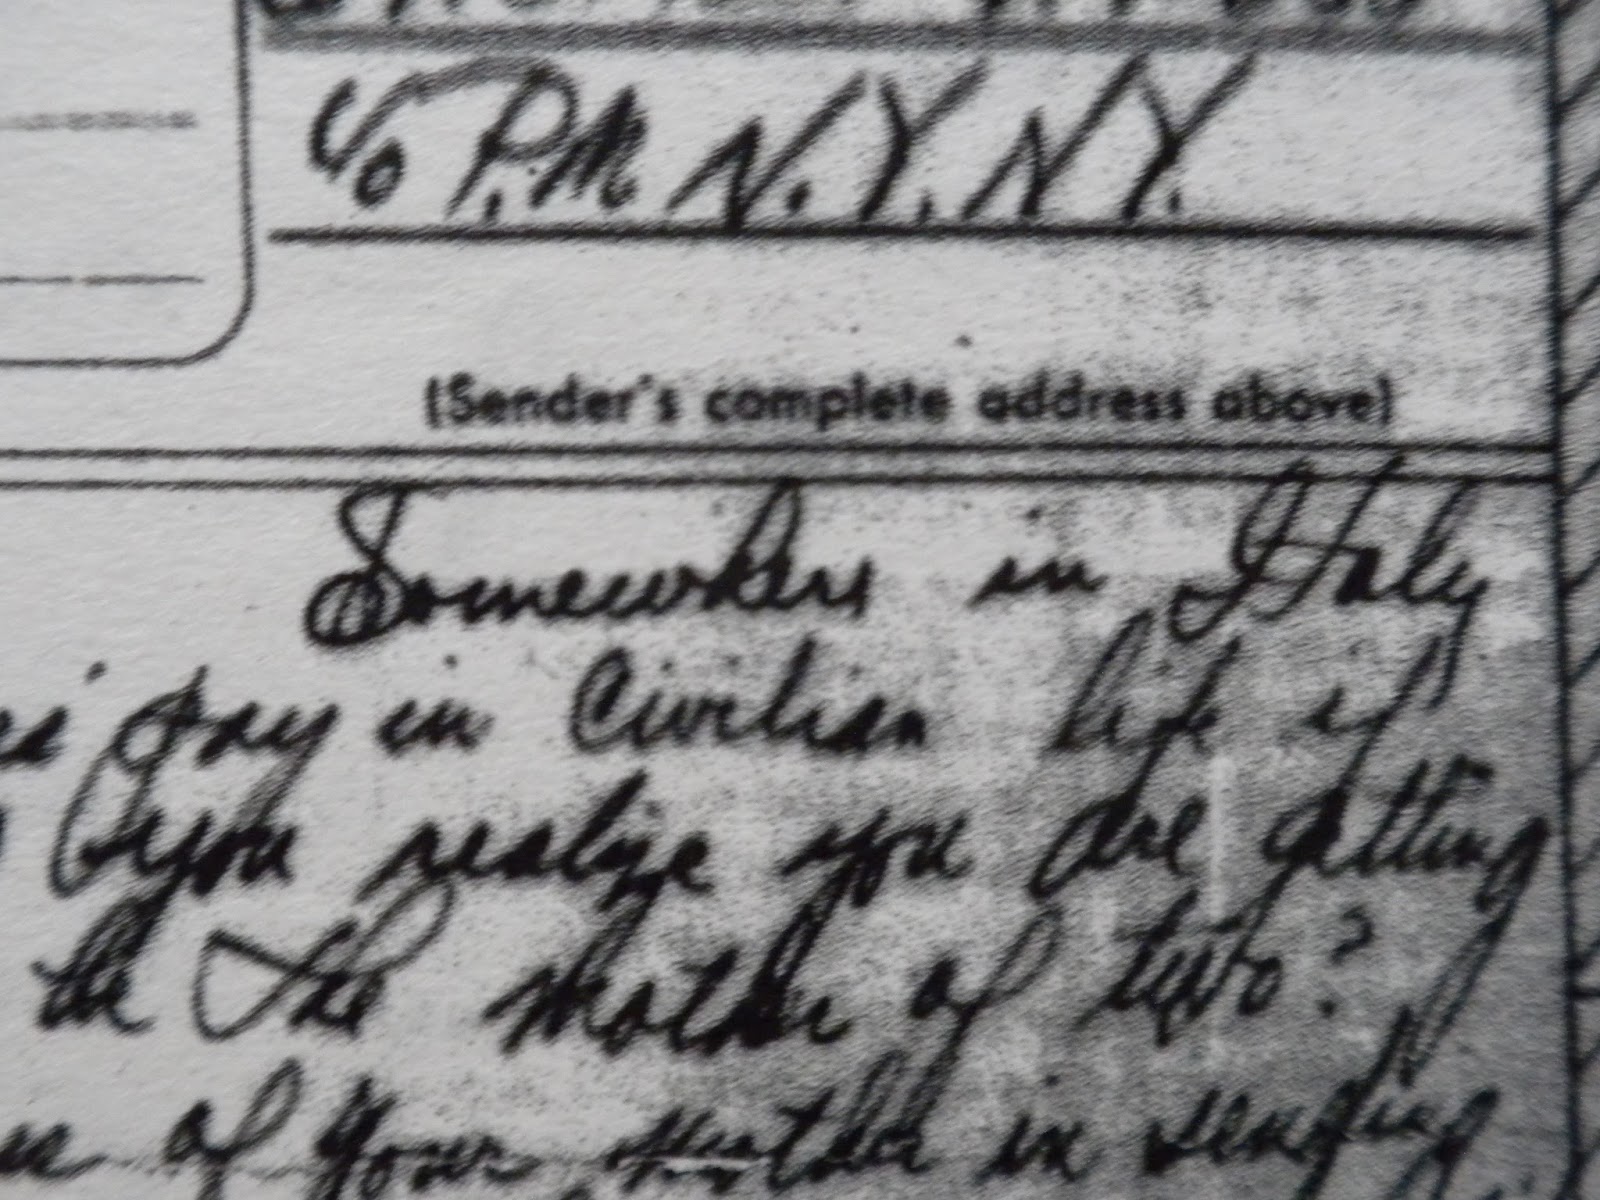 c/o P.M. N.Y. N.Y.
(Sender's complete address above)
Somewhere in Italy
day in Civilian life if
you realize you are getting
be the mother of two?
of your mother in sending